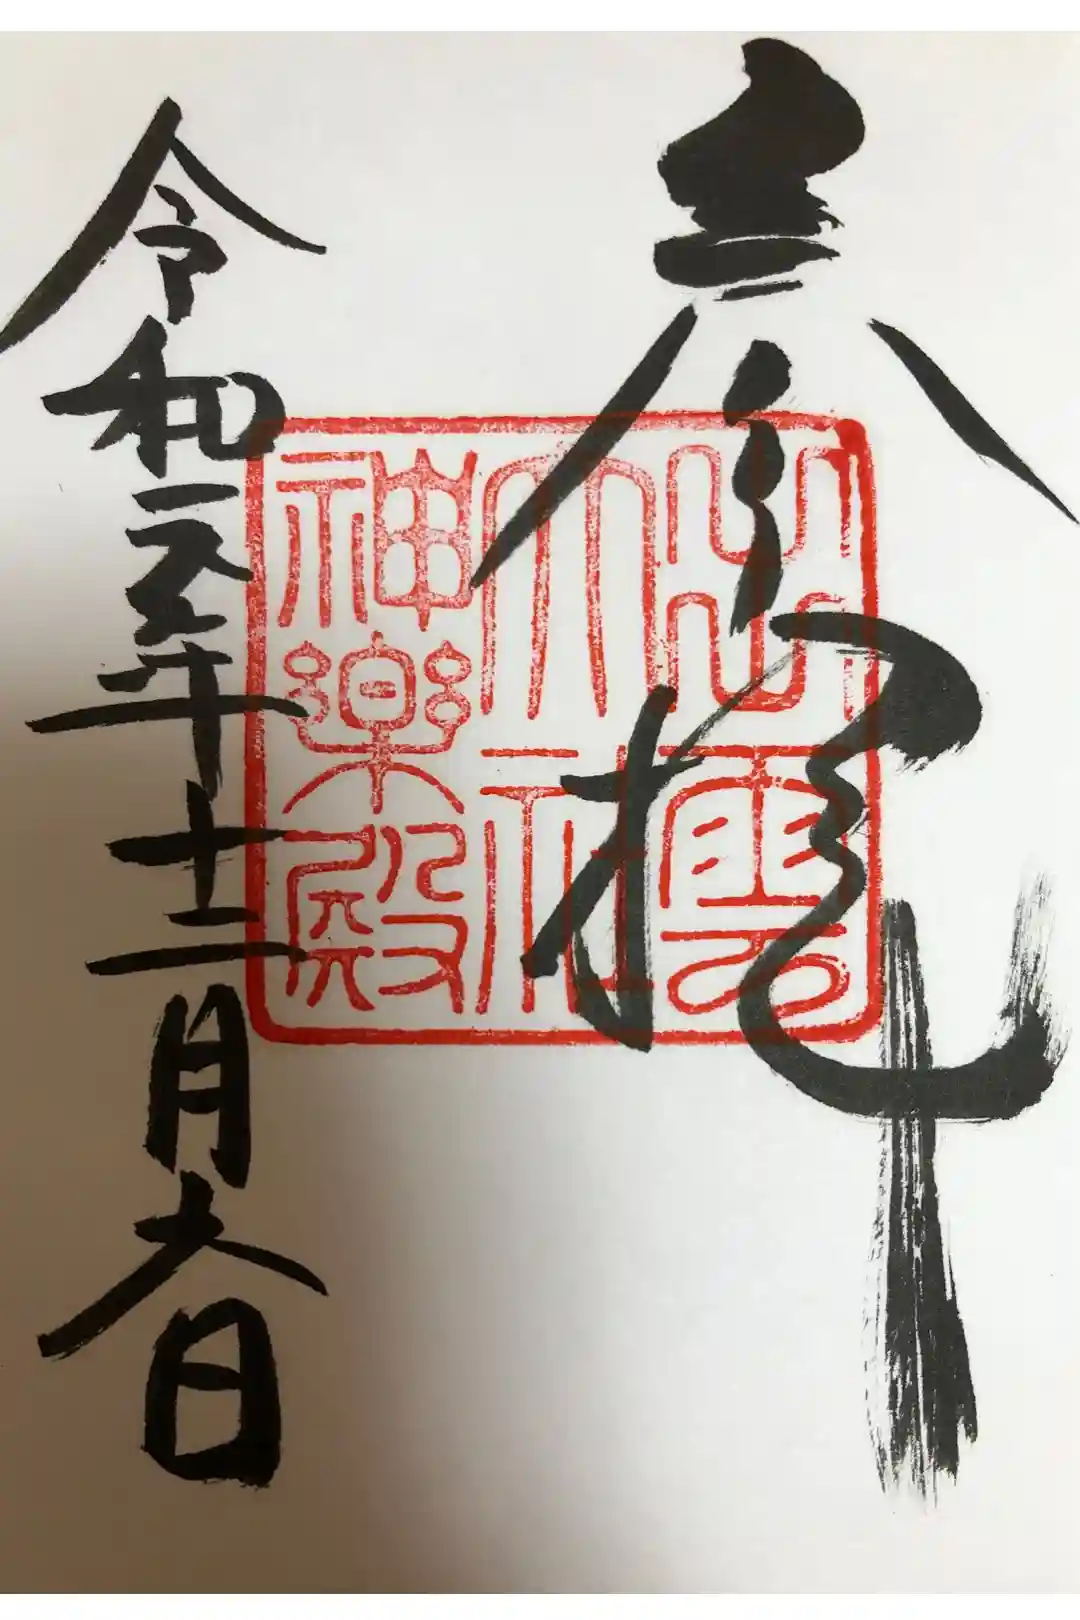 参拝
出雲
大社
神楽殿
令和元年十二月六日